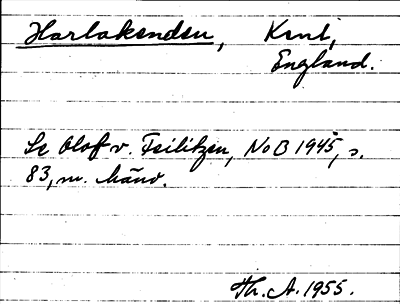 Harlakenden, Kent,
England.
Se Olof v. Feilitzen, NoB 1945, s.
83, m. hänv.
Th. A. 1955.